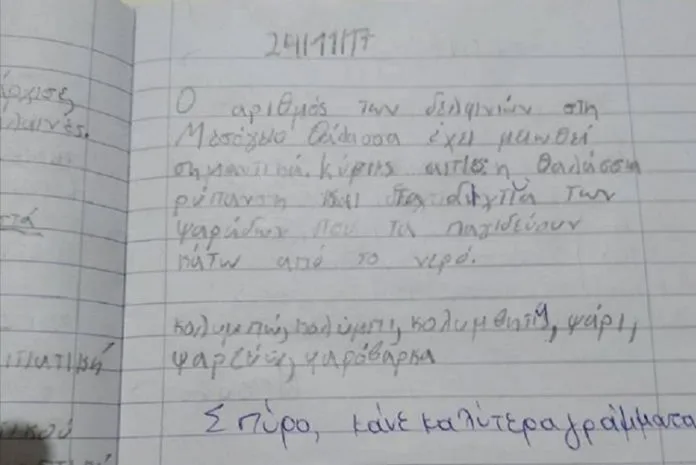 24/11/17
άρχισε
Ο αριθμός των δελφινιών στη
Μεσόγειο θάλασσα έχει μειωθεί
σημαντικά. Κύριες αιτίες η θαλάσσια
ρύπανση και τα δίχτυα των
ψαράδων που τα παγιδεύουν
κάτω από το νερό.
κολυμπώ, κολύμπι, κολυμβητής, ψάρι,
ψαρεύω, ψαρόβαρκα
Σπύρο, κάνε καλύτερα γράμματα